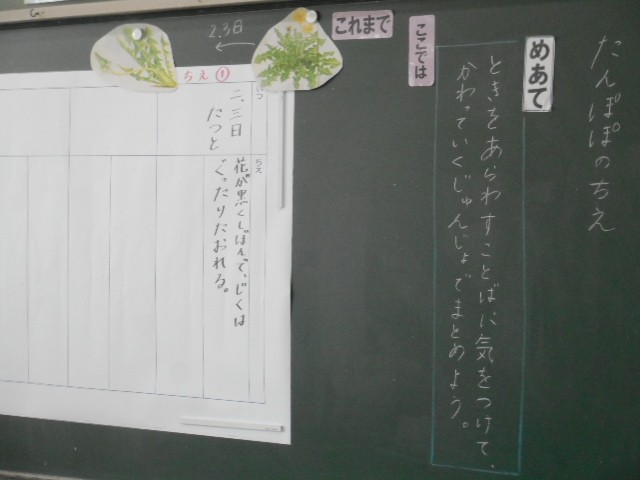 たんぽぽのちえ
めあて
ときをあらわすことばに気をつけて、
かわっていくじゅんじょでまとめよう。
ここでは
これまで
2.3日
ちえ①
いつ
二、三日
たつと
ちえ
花が黒くしぼんで、じくは
ぐったりたおれる。